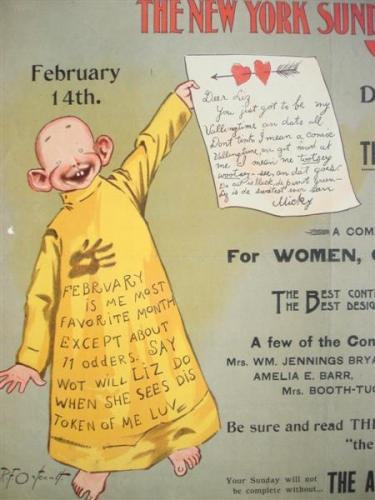 THE NEW YORK SUND
February
14th.
Dear Liz
You just got to be my
Vallingtime an dats all
Dont tink I mean a comic
Vallingtime, an get mad at
me I mean me tootsey
wootsey - see, an dat goes
is de sweetest ever sure
Micky
D
TH
A COM
FOR WOMEN, C
THE BEST CONT
THE BEST DESIG
A few of the Con
Mrs. WM. JENNINGS BRYA
AMELIA E. BARR,
Mrs. BOOTH-TUC
Be sure and read THE
"the
Your Sunday will not
be complete without...
THE A
FEBRUARY
IS ME MOST
FAVORITE MONTH
EXCEPT ABOUT
11 ODDERS. SAY
WOT WILL LIZ DO
WHEN SHE SEES DIS
TOKEN OF ME LUV
R.F. Outcault